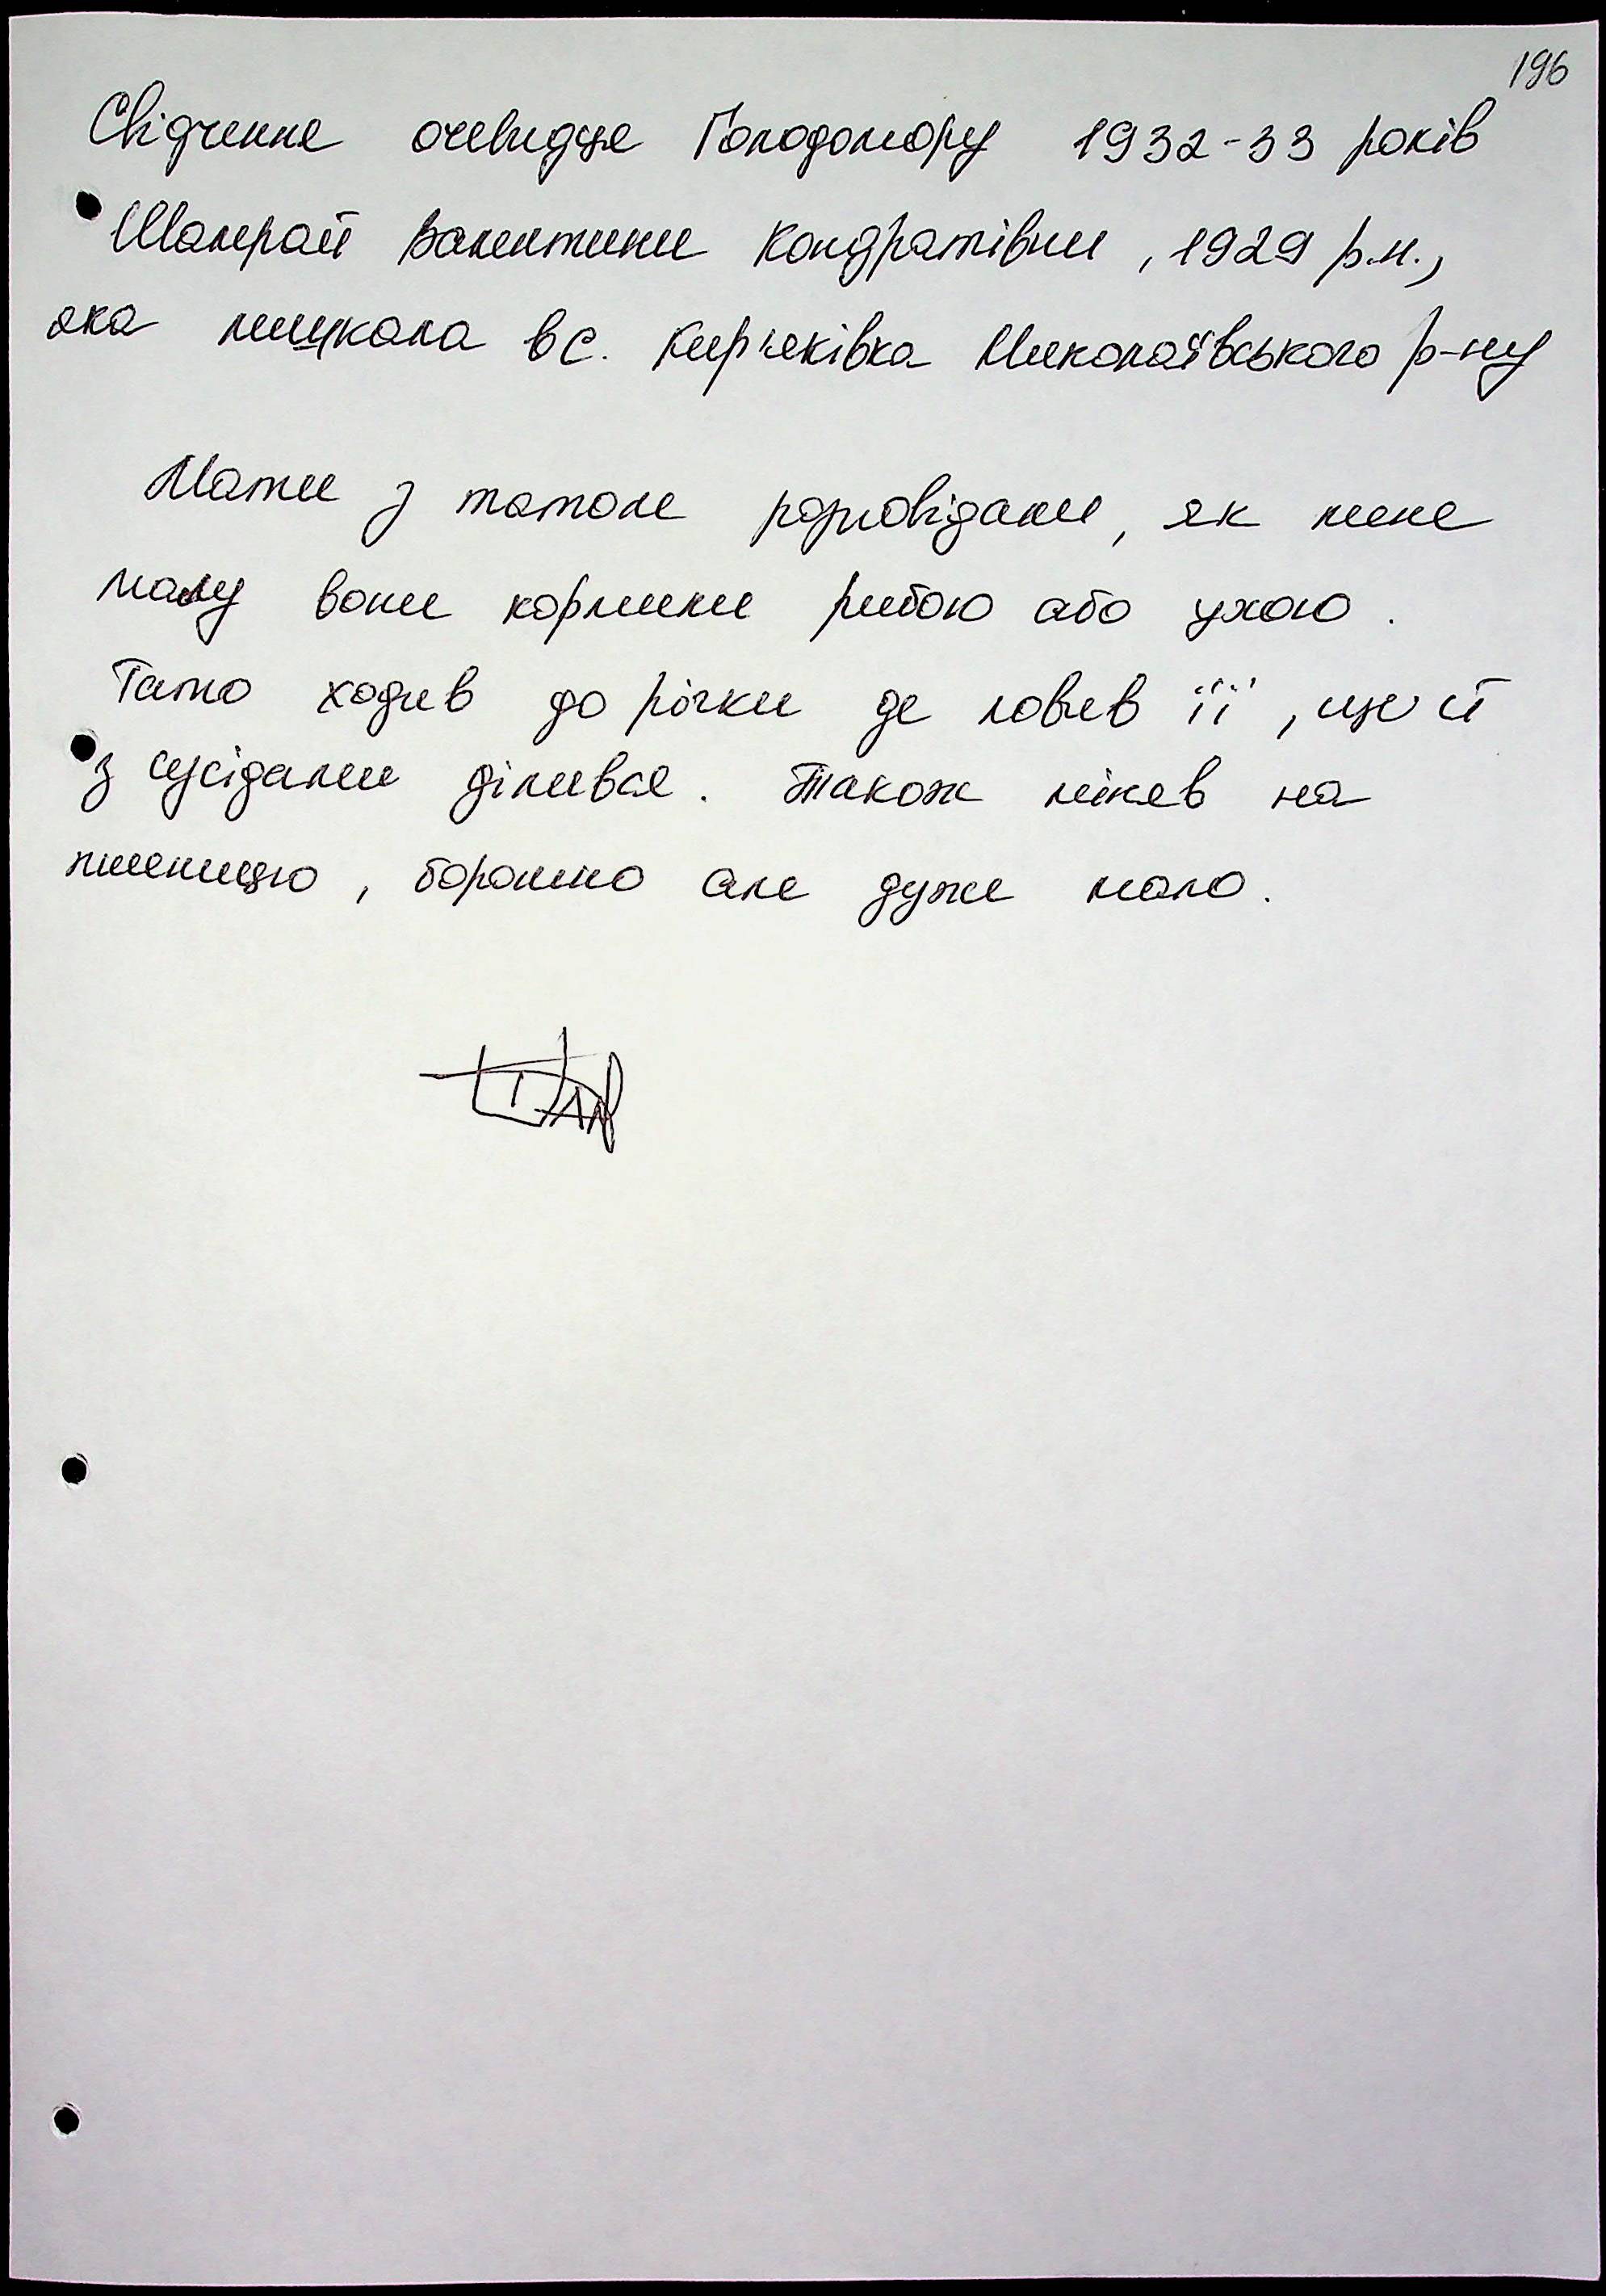 196
Свідчення очевидця Голодомору 1932-33 років
Шамрай Валентини Кондратівни, 1929 р.н.,
яка мешкала в с. Киряківка Миколаївського р-ну
Мати з татом розповідали, як мене
малу вони кормили рибою або ухою.
Тато ходив до річки де ловив її, ще й
з сусідами ділився. Також міняв на
пшеницю, борошно але дуже мало.